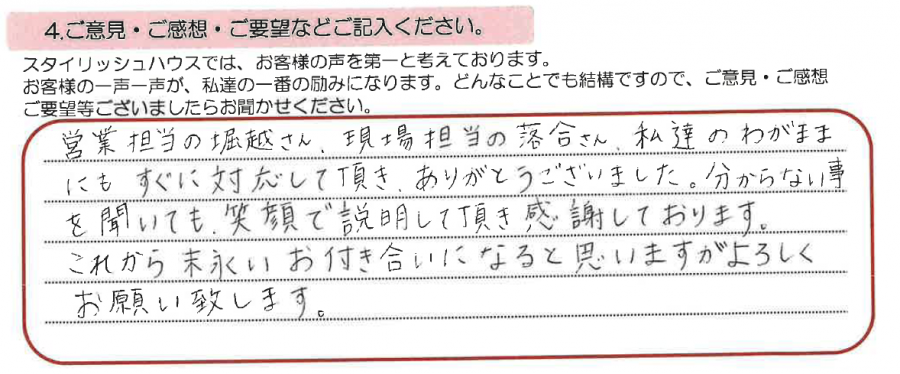 4.ご意見・ご感想・ご要望などご記入ください。
スタイリッシュハウスでは、お客様の声を第一と考えております。
お客様の一声一声が、私達の一番の励みになります。どんなことでも結構ですので、ご意見・ご感想
ご要望等ございましたらお聞かせください。
営業担当の堀越さん、現場担当の落合さん、私達のわがまま
にもすぐに対応して頂き、ありがとうございました。分からない事
を聞いても、笑顔で説明して頂き感謝しております。
これから末永いお付き合いになると思いますがよろしく
お願い致します。